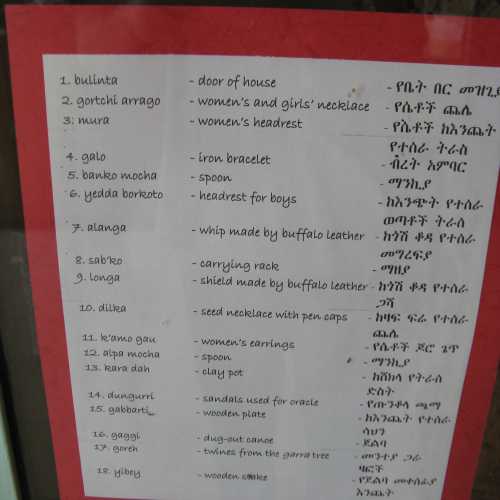 1. bulinta - door of house - የቤት በር መዝጊያ
2. gortchi arrago - women's and girls' necklace - የሴቶች ጨሌ
3. mura - women's headrest - የሴቶች ከእንጨት
የተሰራ ትራስ
4. galo - iron bracelet - ብረት አምባር
5. banko mocha - spoon - ማንኪያ
6. yedda borkoto - headrest for boys - ከእንጭት የተሰራ
ወጣቶች ትራስ
7. alanga - whip made by buffalo leather - ከጎሽ ቆዳ የተሰራ
መግረፍያ
8. sab'ko - carrying rack - ማዘያ
9. longa - shield made by buffalo leather - ከጎሽ ቆዳ የተሰራ
ጋሻ
10. dilka - seed necklace with pen caps - ከዛፍ ፍሬ የተሰራ
ጨሌ
11. k'amo gau - women's earrings - የሴቶች ጆሮ ጌጥ
12. alpa mocha - spoon - ማንኪያ
13. kara dah - clay pot - ከሸክላ የትራስ
ድስት
14. dungurri - sandals used for oracle - የጡንቆላ ጫማ
15. gabbarti - wooden plate - ከእንጨት የተሰራ
ሳህን
16. gaggi - dug-out canoe - ጀልባ
17. goreh - twines from the garra tree - መንተያ ጋራ
ዛፎች
18. yibey - wooden - የጀልባ መቀዘፊያ
እንጨት